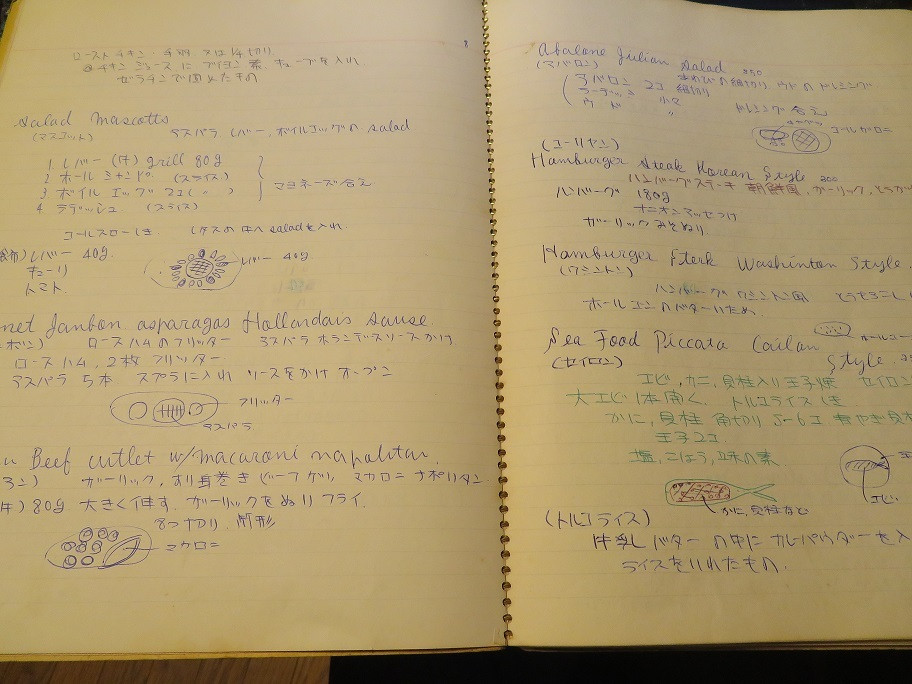 ローストチキン 手羽 又は1/4切り
チキンジュースに ブイヨン素 キューブを入れ
ゼラチンで固めたもの
Salad Mascotts
(マスコット) アスパラ レバー、ボイルエッグの salad
1 レバー (牛) grill 80g
2 ホール (スライス)
3 ボイル エッグ 2コ ( 〃 )
4 ラデッシュ (スライス)
マヨネーズ合え
コールスローしき レタスの中へ saladを入れ
レバー 40g
キューリ
トマト
レバー 40g
Janbon asparagas Hallandais sause
ロースハムのフリッター アスパラ ホランデースソースかけ
ロースハム、2枚 フリッター
アスパラ 5本 スプラに入れ ソースをかけ オーブン
フリッター
アスパラ
Beef cutlet w/macaroni napolitan
ガーリック、すり身巻き ビーフ マカロニ ナポリタン
80g 大きく伸す ガーリックをぬり フライ
8つ切り 筒形
マカロニ
8
Abalone Julian Salad 250
(アバロン)
アバロン 2コ 細切り ウドのドレッシング
ラデッシュ 小2
ウド 〃
ドレッシング合え
(コーリヤン)
Hamburger Steak Korean Style 200
ハンバーグステーキ 朝鮮風、ガーリック、とうが
ハンバーグ 180g
オニオン
ガーリックみそぬり
Hamburger Sterk Washinton Style
(ワシントン)
ハンバーグ ワシントン風 とうもろこし
ホールコーンのバターいため
Sea Food Piccata Ceilan Style
(セイロン)
エビ、カニ、貝柱入り玉子焼 セイロン
大エビ1本開く トルコライスしき
かに、貝柱 角切り 5~6コ
玉子2コ
塩、こしょう、味の素
かに、貝柱など
エビ
(トルコライス)
牛乳 バターの中に カレーパウダーを入
ライスをいれたもの.